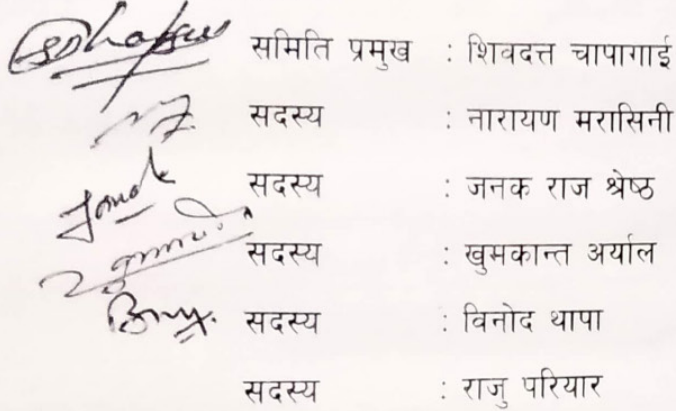 समिति प्रमुख : शिवदत्त चापागाई
सदस्य : नारायण मरासिनी
सदस्य : जनक राज श्रेष्ठ
सदस्य : खुमकान्त अर्याल
सदस्य : विनोद थापा
सदस्य : राजु परियार